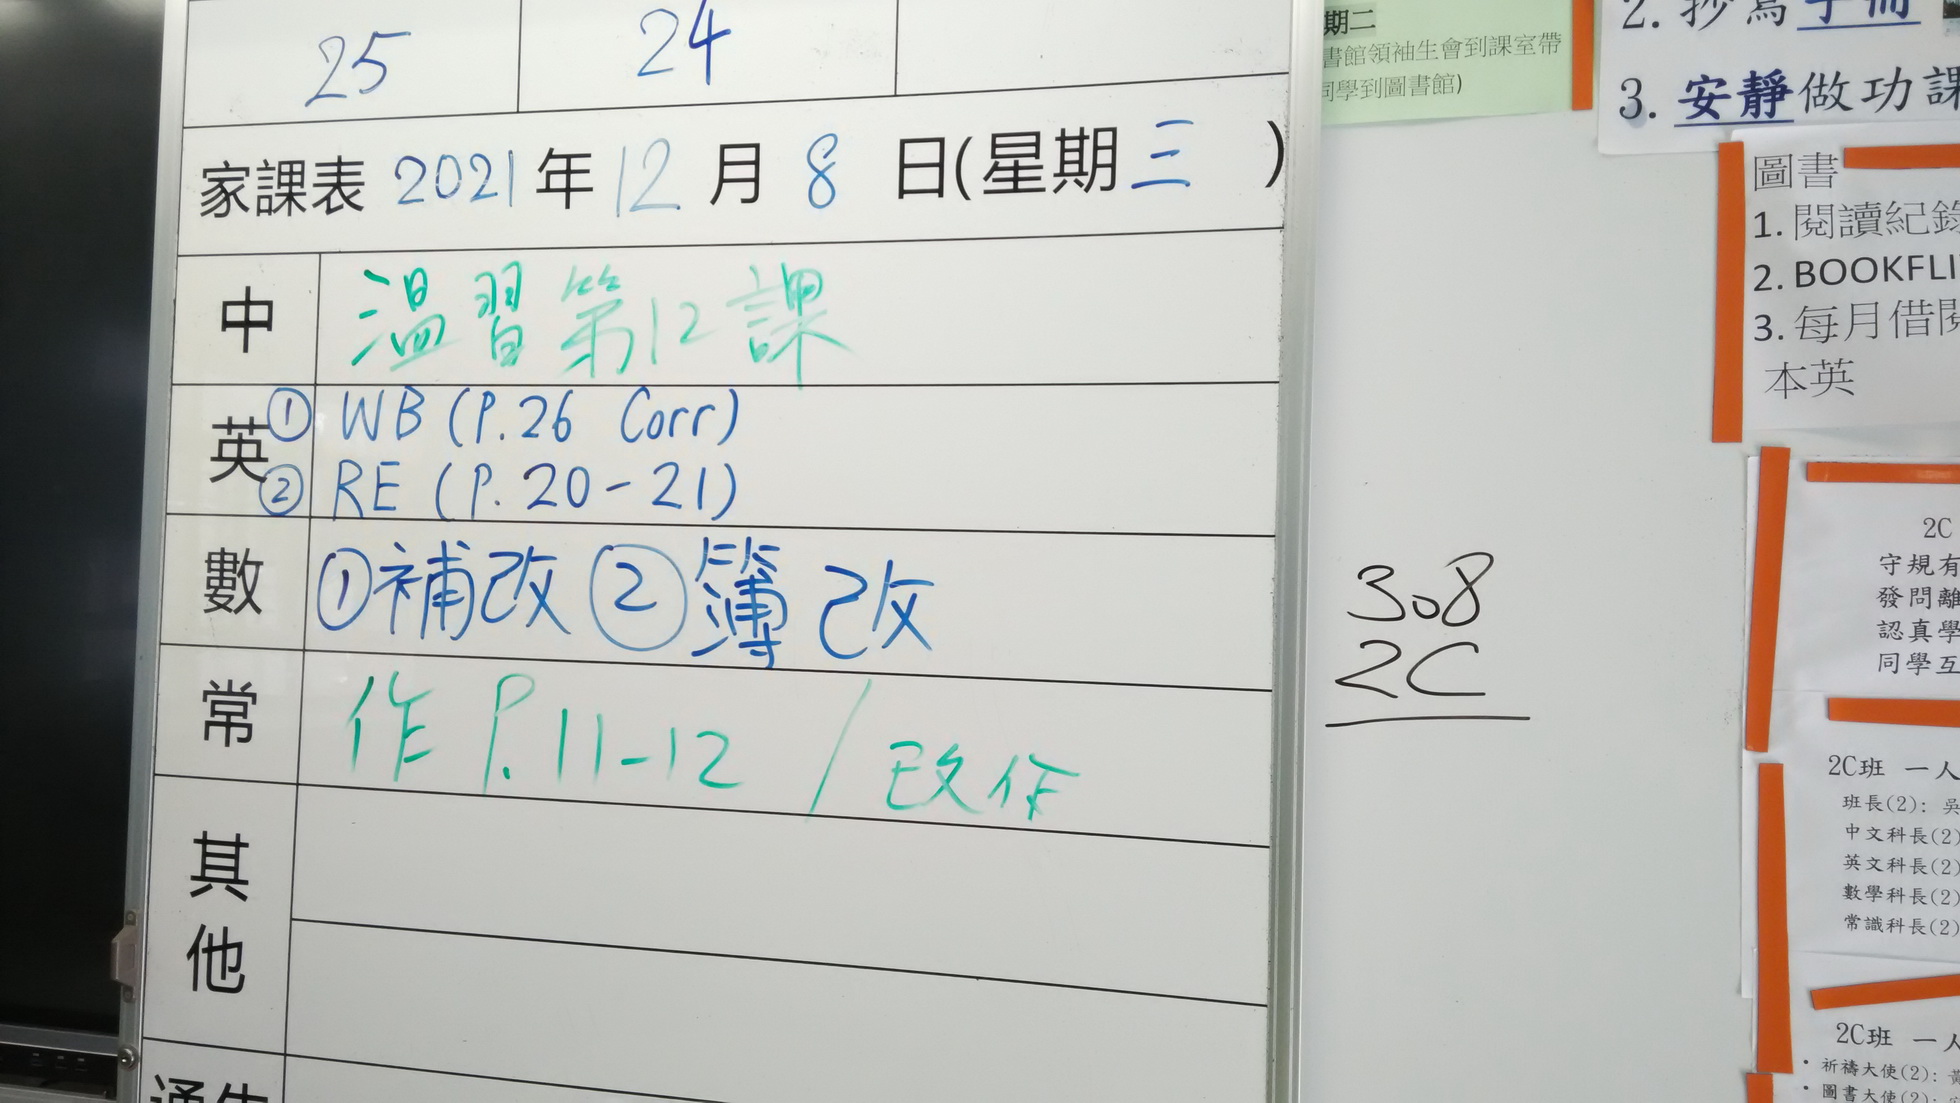 25
24
家課表 2021 年 12 月 8 日(星期三 )
中
溫習第12課
英
① WB (P.26 Corr)
② RE (P.20-21)
數
①補改 ②簿改
常
作 P.11-12 / 改作
其
他
308
2C
期二
書館領袖生會到課室帶
同學到圖書館)
2. 抄寫手冊
3. 安靜做功課
圖書
1. 閱讀紀錄
2. BOOKFLI
3. 每月借閱
本英
2C
守規有
發問離
認真學
同學互
2C班 一人
班長(2): 吳
中文科長(2)
英文科長(2)
數學科長(2)
常識科長(2)
2C班 一人
• 祈禱大使(2): 黃
• 圖書大使(2):